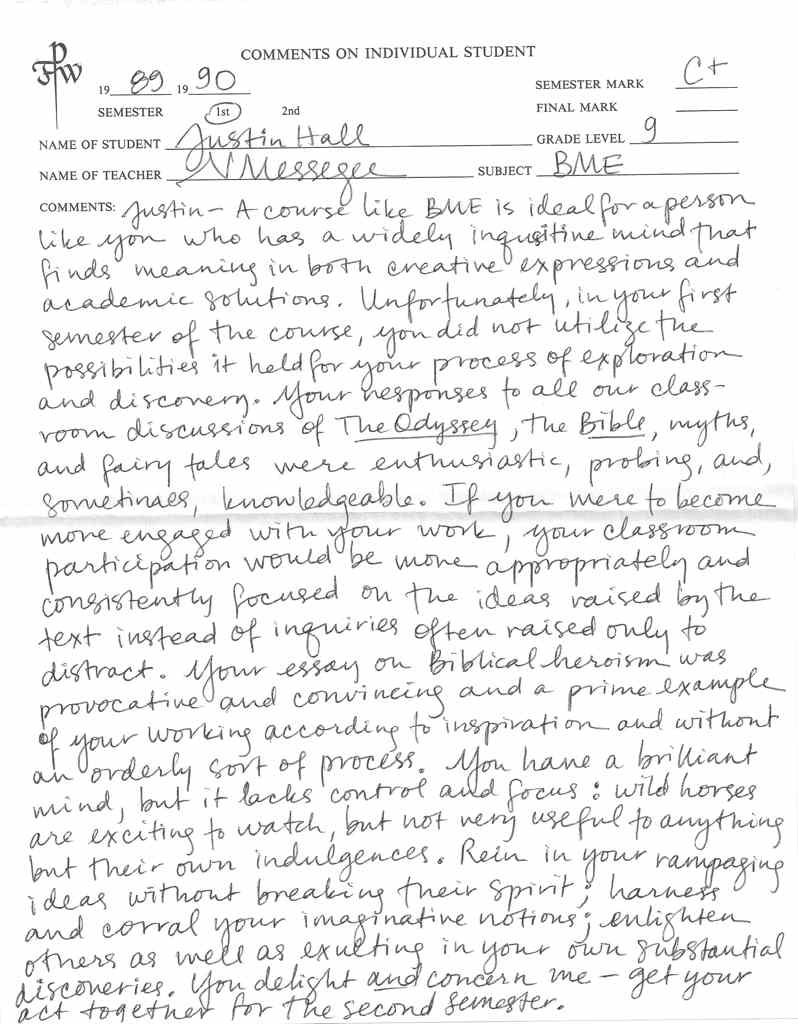 COMMENTS ON INDIVIDUAL STUDENT
FPW
19 89 19 90
SEMESTER MARK C+
SEMESTER 1st 2nd
FINAL MARK
NAME OF STUDENT Justin Hall GRADE LEVEL 9
NAME OF TEACHER N Messegee SUBJECT BME
COMMENTS: Justin – A course like BME is ideal for a person
like you who has a widely inqusitive mind that
finds meaning in both creative expressions and
academic solutions. Unfortunately, in your first
semester of the course, you did not utilize the
possibilities it held for your process of exploration
and discovery. Your responses to all our class-
room discussions of The Odyssey, the Bible, myths,
and fairy tales were enthusiastic, probing, and,
sometimes, knowledgeable. If you were to become
more engaged with your work, your classroom
participation would be more appropriately and
consistently focused on the ideas raised by the
text instead of inquiries often raised only to
distract. Your essay on Biblical heroism was
provocative and convincing and a prime example
of your working according to inspiration and without
an orderly sort of process. You have a brilliant
mind, but it lacks control and focus : wild horses
are exciting to watch, but not very useful to anything
but their own indulgences. Rein in your rampaging
ideas without breaking their spirit; harness
and corral your imaginative notions; enlighten
others as well as exulting in your own substantial
discoveries. You delight and concern me – get your
act together for the second semester.